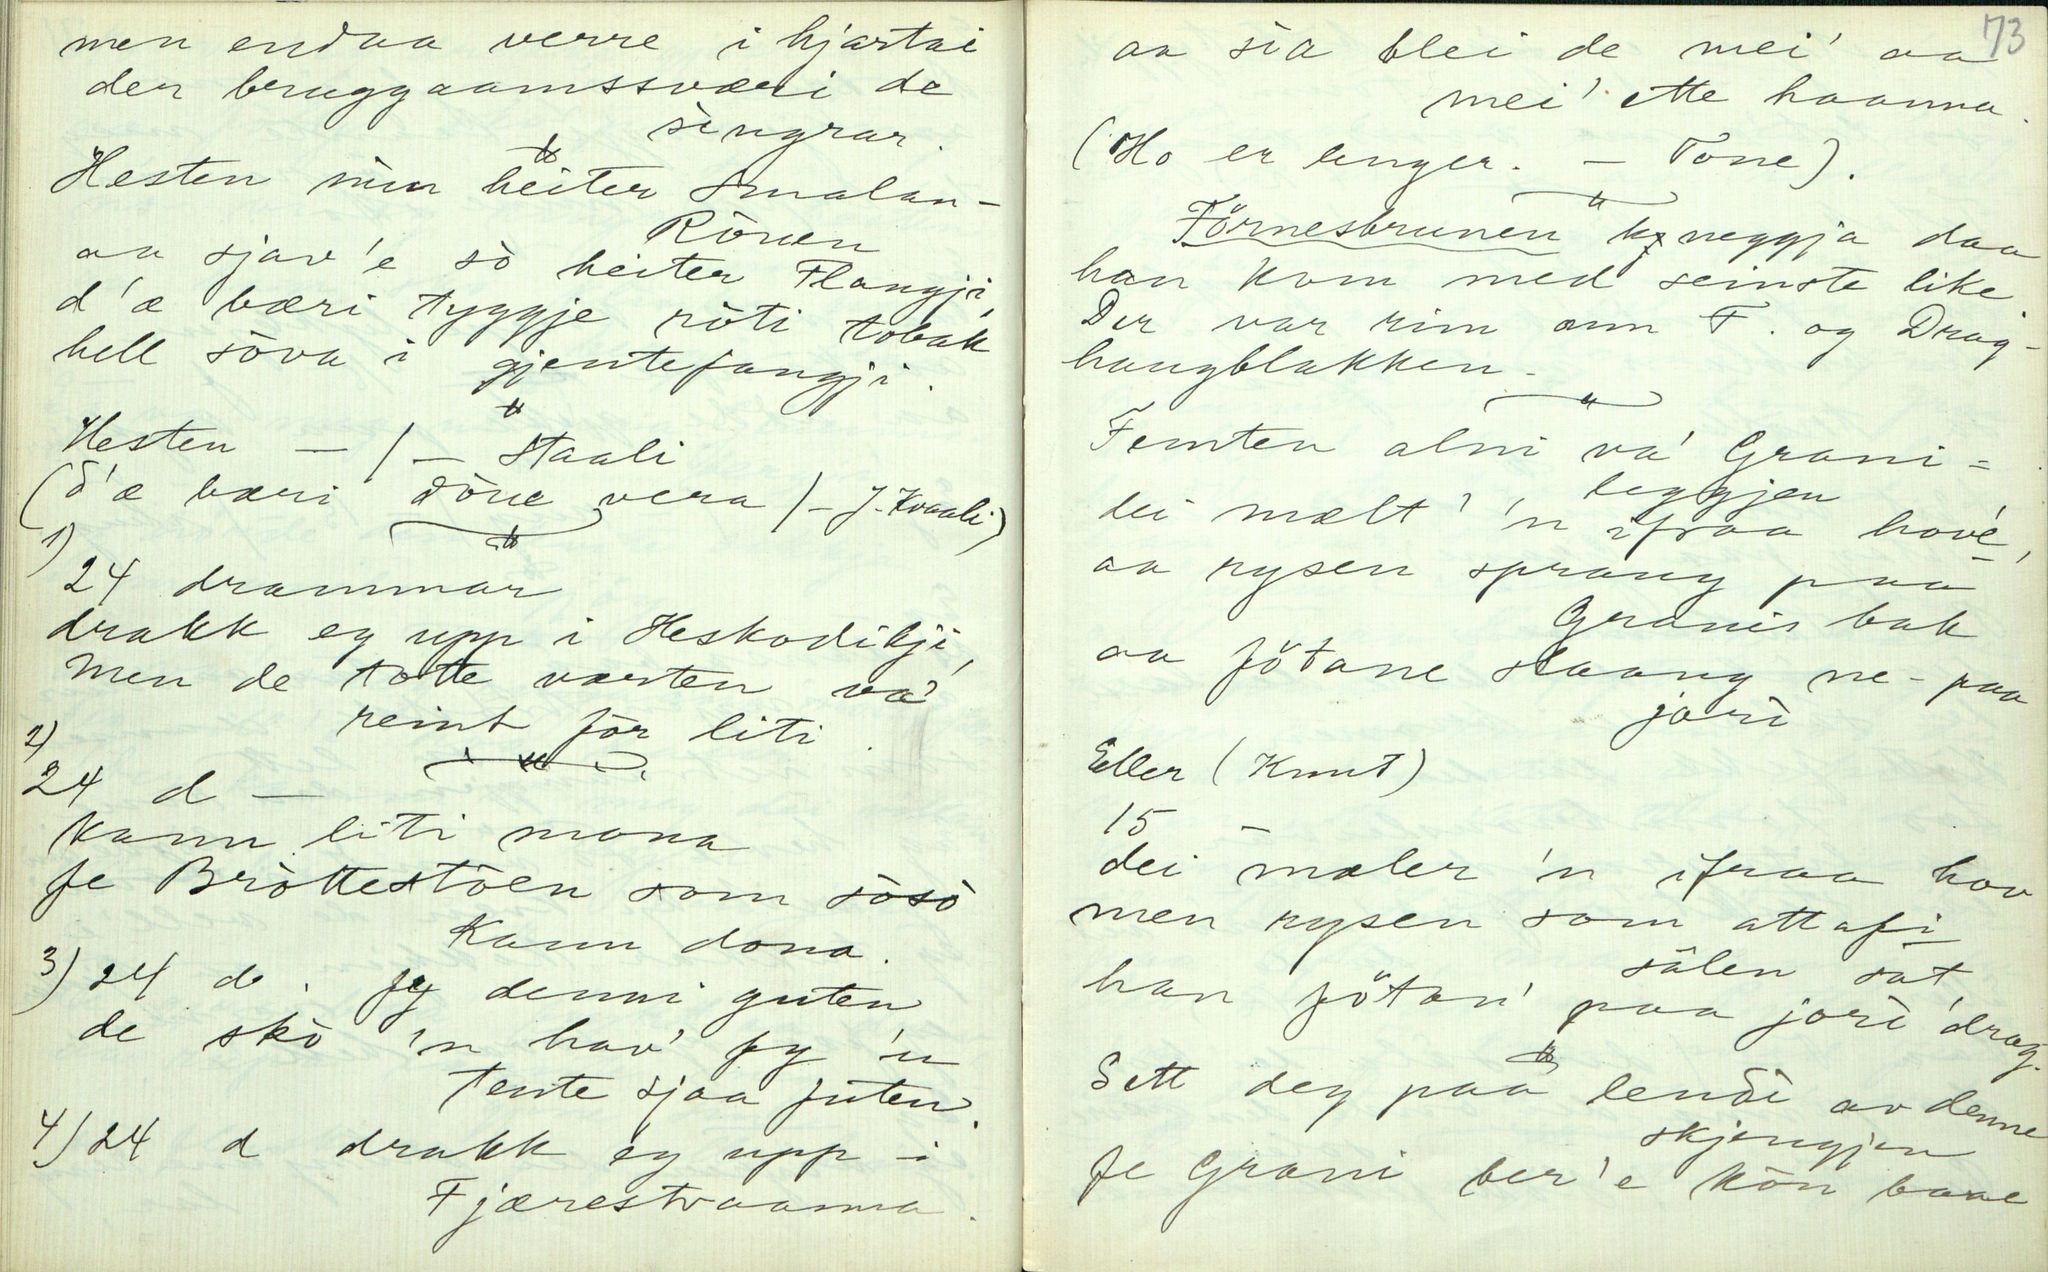 men endaa verre i hjartai
den bruggaamssværi de
singrar.
Hesten min heiter Smalan-
Rönen
aa sjav'e sò heiter Flangji
d'æ bæri tyggje ròti tobak
hell sòva i gjentefangji.
Hesten — / — Staali
(d'æ bæri Töne vera / - J. Kvaali)
1)
24 drammar
drakk eg upp i Heskodikji,
men de totte værten va'
reint for liti.
2)
24 d —
kann liti mona
fe Bròttestòen som sòsò
kann dona.
3) 24 d. fy denni guten
de skò 'n hav' fy 'n
tente sjaa futen.
4) 24 d drakk eg upp i
Fjærestraanna.
73
aa sia blei de mei' aa
mei' ette haanna.
(Ho er lenger. — Tone).
Förnesbrunen kneggja daa
han kom med seinste like.
Der var rim om F. og Drag-
haugblakken.
Femten alni va' Grani-
leggjen
dei mælt' 'n ifraa hove',
aa rysen sprang paa
Granis bak
aa fötane slaang ne- paa
jori
Eller (Knut)
15 —
dei mæler 'n ifraa hov
men rysen som attafi
sålen sat
han fötan' paa jori' drog.
Sett deg paa lendi av denne
skjengjen
fe Grani ber'e kön bare